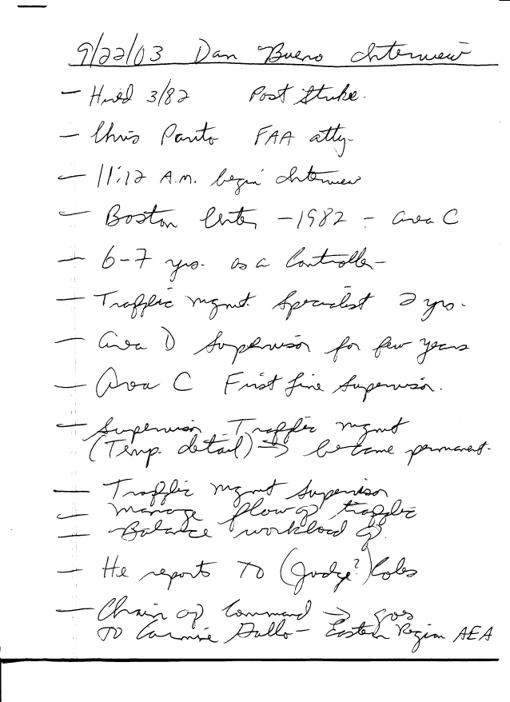 9/22/03 Dan Bueno Interview
- Hired 3/82 Post Strike.
- Chris Panto FAA atty.
- 11:12 A.M. begin Interview
- Boston Center - 1982 - area C
- 6-7 yrs. as a Controller-
- Traffic mgmt Specialist 2 yrs.
- Area D Supervisor for few years
- Area C First line Supervisor.
- Supervisor Traffic mgmt
(Temp. detail) → became permanent.
- Traffic mgmt Supervisor
- manage flow of traffic
- Balance workload of
- He report TO (Judge?) Coles
- Chain of Command → goes
TO Carmine Gallo - Eastern Region AEA